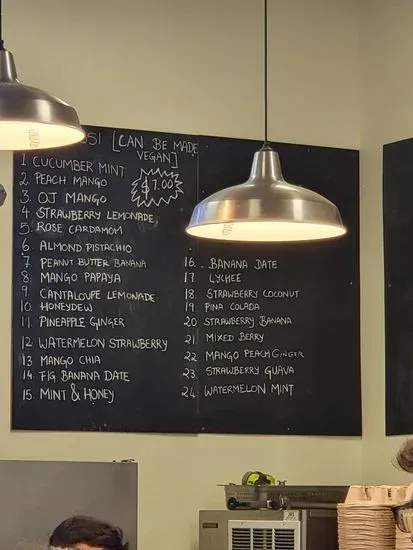 SSI [CAN BE MADE
VEGAN]
$7.00
1. CUCUMBER MINT
2. PEACH MANGO
3. OJ MANGO
4. STRAWBERRY LEMONADE
5. ROSE CARDAMOM
6. ALMOND PISTACHIO
7. PEANUT BUTTER BANANA
8. MANGO PAPAYA
9. CANTALOUPE LEMONADE
10. HONEYDEW
11. PINEAPPLE GINGER
12 WATERMELON STRAWBERRY
13 MANGO CHIA
14. FIG BANANA DATE
15. MINT & HONEY
16. BANANA DATE
17. LYCHEE
18. STRAWBERRY COCONUT
19 PINA COLADA
20 STRAWBERRY BANANA
21 MIXED BERRY
22 MANGO PEACH GINGER
23. STRAWBERRY GUAVA
24. WATERMELON MINT